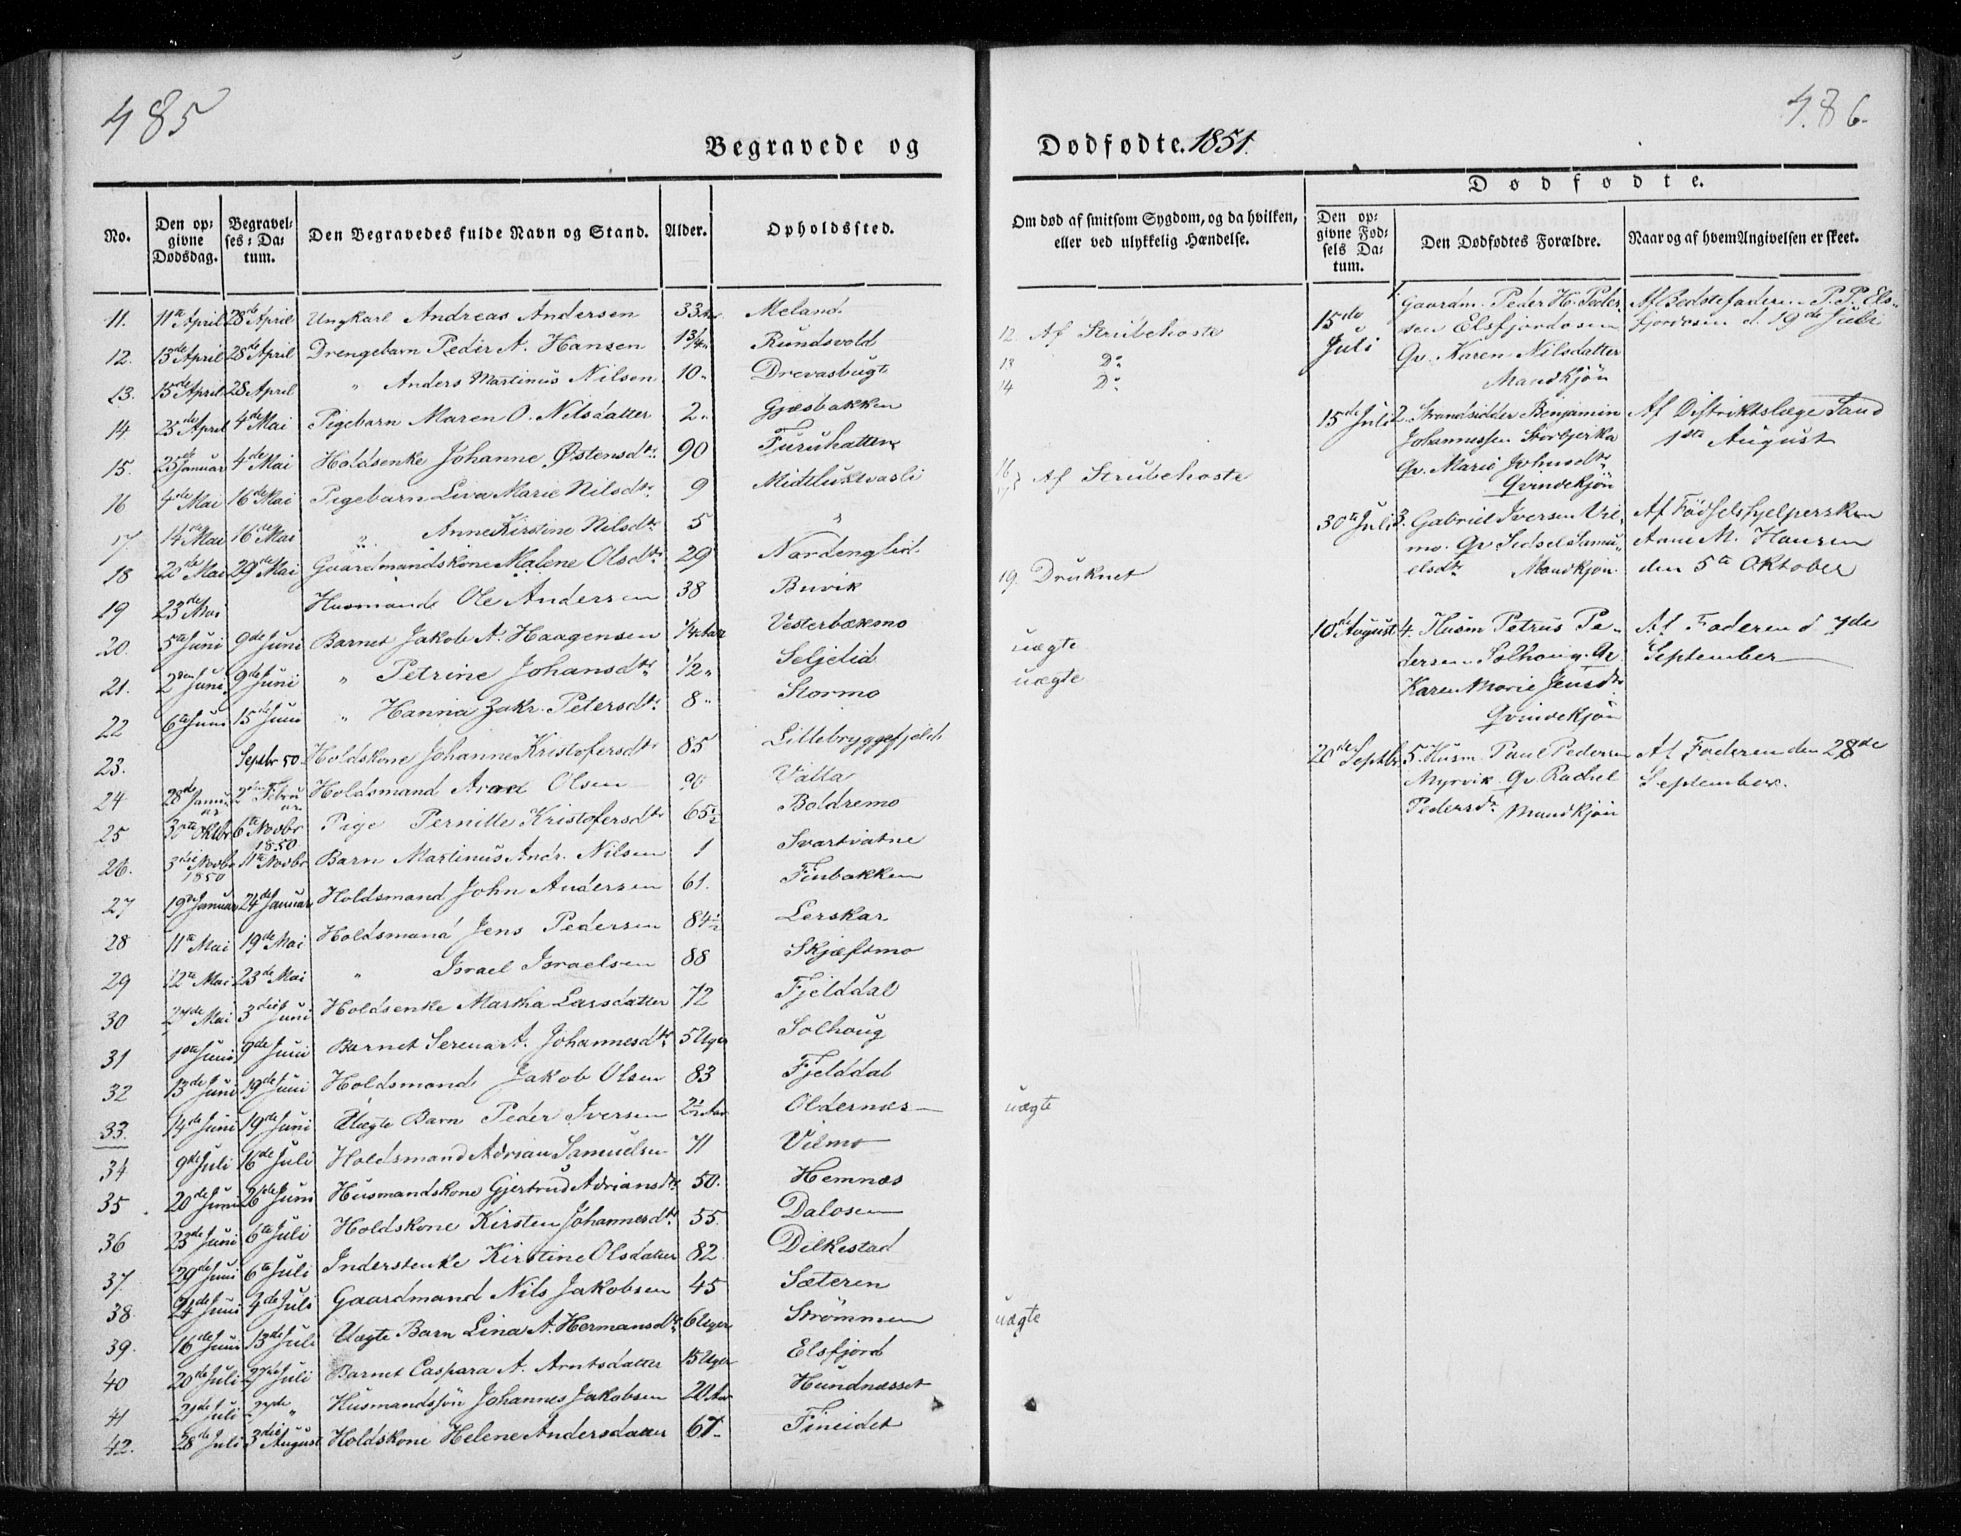 485
Begravede og
No. Den opgivne Dødsdag. Begravelses-Datum. Den Begravedes fulde Navn og Stand. Alder. Opholdssted.
11. 11te April 28de April Ungkarl Andreas Andersen 33 Meland
12. 13de April 28de April Drengebarn Peder A. Hansen 1 3/4 " Rundsvold
13. 15de April 28 April " Anders Martinus Nilsen 10 " Drevasbugt
14 25de April 4de Mai Pigebarn Maren O. Nilsdatter 2 " Gjæsbakken
15. 23de Januar 4de Mai Holdsenke Johanne Østensdtr 90 Furuhatten
16 4de Mai 16de Mai Pigebarn Liva Marie Nilsdtr 9 Midtluktvasli
17. 14de Mai 16de Mai " Anne Kirstine Nilsdtr 5 "
18 20de Mai 29de Mai Gaardmandskone Malene Olsdtr 29
19 23de Mai Husmand Ole Andersen 38 Buvik
20. 5te Juni 9de Juni Barnet Jakob A. Haagensen 1/4 Aar Vesterbækmo
21. 2den Juni 9de Juni " Petrine Johansdtr 1/2 " Seljelid
22 6te Juni 15de Juni " Hanna Zakr. Petersdtr 8 " Stormo
23. Septbr 50. Holdskone Johanne Kristofersdtr 85 Littebryggefjeldt
24 28de Januar 2den Februar Holdsmand Olsen 90
25 30te Oktbr 6te Novbr 1850 Pige Pernille Kristofersdtr 65 1/2 Boldremo
26. 3die Novbr 1850 11te Novbr Barn Martinus Andr. Nilsen 1 Svartvatne
27 19de Januar 24de Januar Holdsmand John Andersen 61. Finbakken
28 11te Mai 19de Mai Holdsmand Jens Pedersen 84 1/2 Lerskar
29 12te Mai 23de Mai " Israel Israelsen 88 Skjæftmo
30 27de Mai 3die Juni Holdsenke Martha Larsdatter 72 Fjelddal
31 1ste Juni 9de Juni Barnet Serena A. Johannesdtr 5 Uger Solhoug
32 13de Juni 19de Juni Holdsmand Jakob Olsen 83 Fjelddal
33. 14de Juni 19de Juni Uægte Barn Peder Iversen 2 1/2 Aar Oldernæs
34 9de Juli 16de Juli Holdsmand Adrian Samuelsen 71 Vilmo
35 20de Juni 26de Juni Husmandskone Gjertrud Adriansdtr 50. Hemnæs
36 23de Juni 6te Juli Holdskone Kirsten Johannesdtr 55. Dalosen
37. 29de Juni 6te Juli Inderstenke Kirstine Olsdatter 82. Dilkestad
38. 24de Juni 4de Juli Gaardmand Nils Jakobsen 45 Sæteren
39. 16de Juni 13de Juli Uægte Barn Lina A. Hermansdtr 6 Uger Strømmen
40 20de Juli 27de Juli Barnet Caspara A. Arntsdatter 15 Uger Elsfjord
41 21de Juli 27de " Husmandssøn Johannes Jakobsen 20 Aar Hundnæsset
42. 28de Juli 3die August Holdskone Helene Andersdatter 67 Fineidet
486.
Dødfødte. 1851.
Dødfødte.
Om død af smitsom Sygdom, og da hvilken, eller ved ulykkelig Hændelse. Den opgivne Fødsels Datum. Den Dødfødtes Forældre. Naar og af hvem Angivelsen er skeet.
12 Af Strubehoste
13 Do
14 Do
16 17 } Af Strubehoste
19. Druknet
uægte
uægte
uægte
uægte
15de Juli 1. Gaardm. Peder H. Pedersen Elsfjordosen Qv. Karen Nilsdatter Mandkjøn Af Bedstefaderen P. P. Elsfjordosen d. 19de Juli
15de Juli 2. Strandsidder Benjamin Johannessen Storbjerka Qv. Marie Johnsdtr Qvindekjøn Af Distriktslæge Sand 1ste August
30te Juli 3. Gabriel Iversen Vilmo. Qv Sidsel Samuelsdtr Mandkjøn. Af Fødselshjelpersken Anne M. Hansen den 5te Oktober
10de August 4. Husm Petrus Pedersen Solhoug. Qv. Karen Marie Jensdtr Qvindekjøn Af Faderen d 7de September
20de Septbr 5. Husm. Paul Pedersen Myrvik Qv. Rachel Pedersdtr Mandkjøn Af Faderen den 28de September.